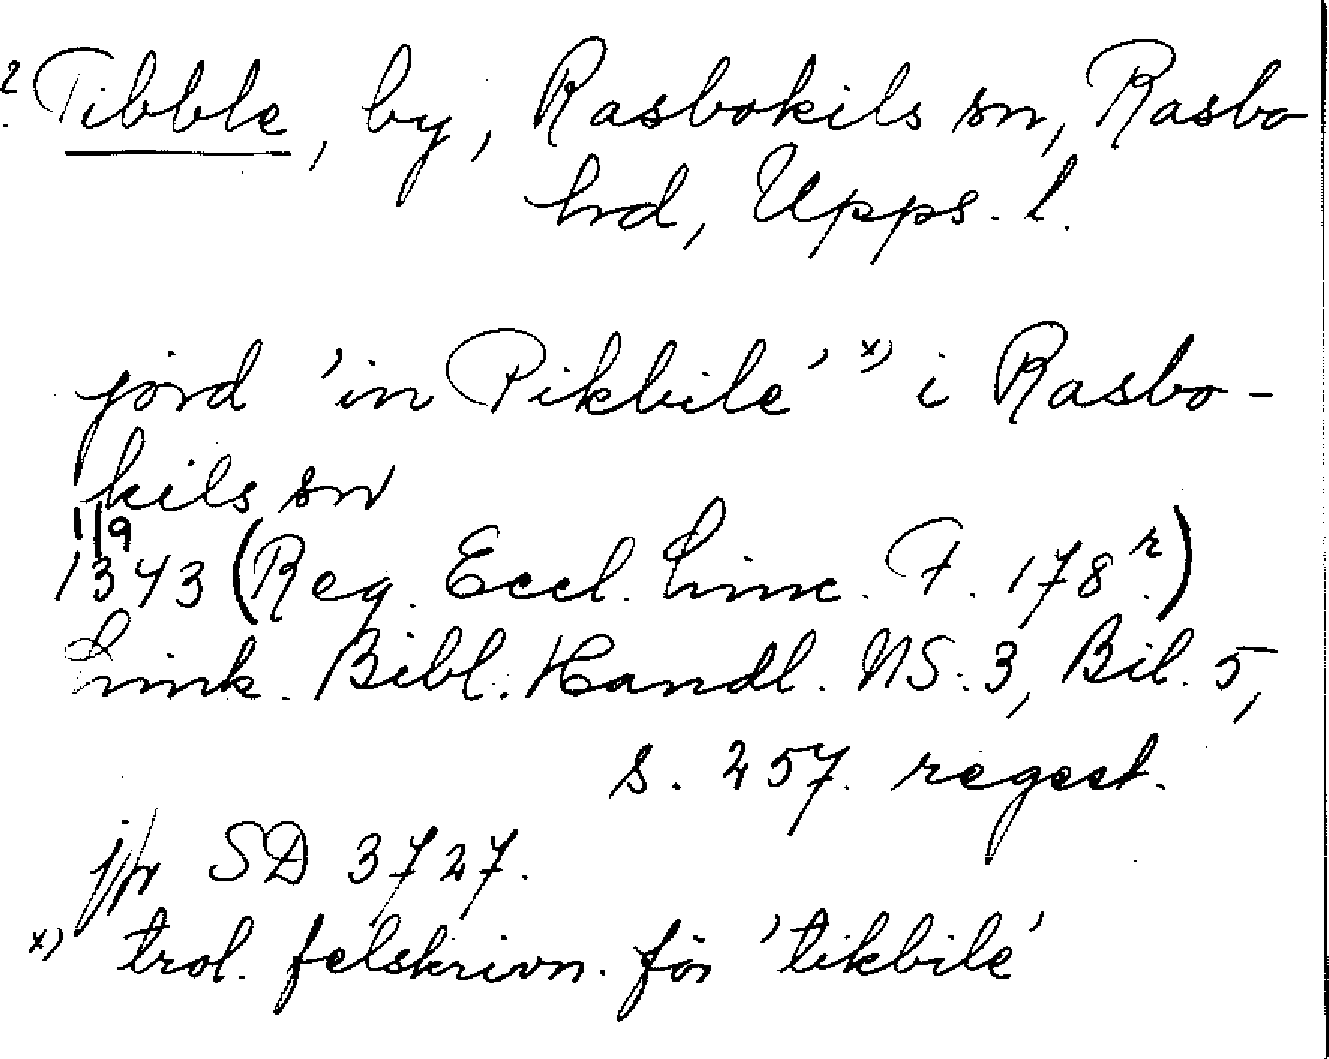 ? Tibble, by, Rasbokils sn, Rasbo
hrd, Upps. l.
jord 'in Pikbile' x) i Rasbo-
kils sn
11/9
1343 (Reg. Eccl. Linc. F. 178 r.)
Link. Bibl. Handl. NS. 3, Bil. 5,
s. 257. regest.
jfr SD 3727.
x) trol. felskrivn. för 'tikbile'